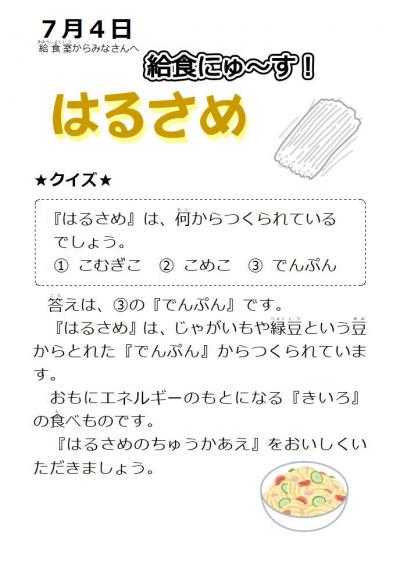 ７月４日
給食室からみなさんへ
給食にゅ～す！
はるさめ
★クイズ★
『はるさめ』は、何からつくられている
でしょう。
① こむぎこ　② こめこ　③ でんぷん
答えは、③の『でんぷん』です。
『はるさめ』は、じゃがいもや緑豆という豆
からとれた『でんぷん』からつくられていま
す。
おもにエネルギーのもとになる『きいろ』
の食べものです。
『はるさめのちゅうかあえ』をおいしくい
ただきましょう。